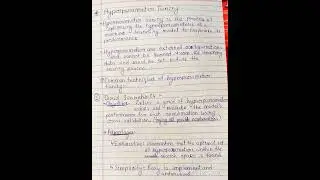 * Hyperparameter Tuning
• Hyperparameter tuning is the process of
optimizing the hyperparameters of a
machine learning model to improve its
performance
• Hyperparameters are external configurations
and cannot be learned from the training
data and must be set before the
training process
Common techniques of hyperparameter
tuning:-
① Grid Search:-
• Define a grid of hyperparameter
values and evaluate the model's
performance for each combination using
cross validation
* Advantages
• Exhaustive:
of hyperparameters within the
search space is found
• Simplicity: Easy to implement and
understand